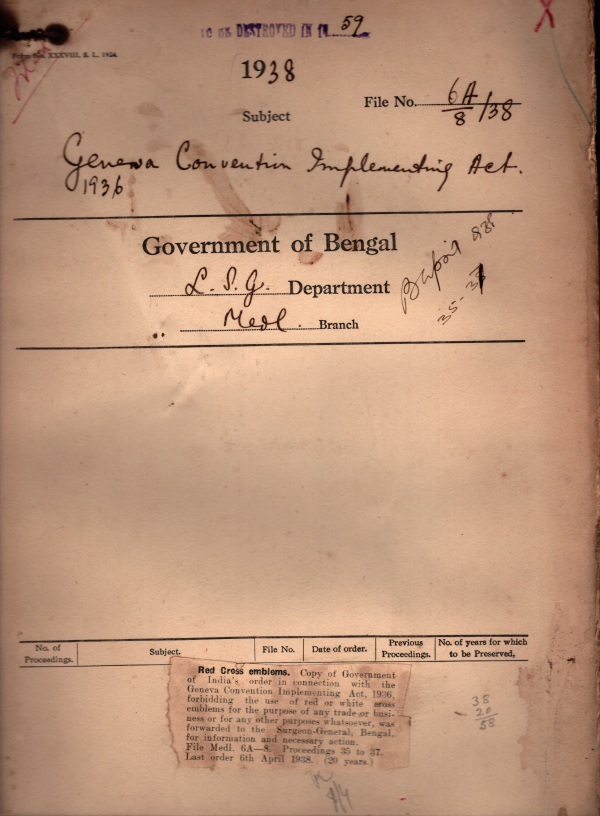 TO BE DESTROYED IN 19 59
Form No. XXXVIII, S. L. 1934.
1938
File No. 6A/8/38
Subject
Geneva Convention Implementing Act.
1936
Government of Bengal
L. S. G. Department
Medl. Branch
B April 938
35-37
No. of Proceedings. Subject. File No. Date of order. Previous Proceedings. No. of years for which to be Preserved.
Red Cross emblems. Copy of Government
of India's order in connection with the
Geneva Convention Implementing Act, 1936,
forbidding the use of red or white cross
emblems for the purpose of any trade or busi-
ness or for any other purposes whatsoever, was
forwarded to the Surgeon-General, Bengal,
for information and necessary action.
File Medl. 6A—8. Proceedings 35 to 37.
Last order 6th April 1938. (20 years.)
38
20
58